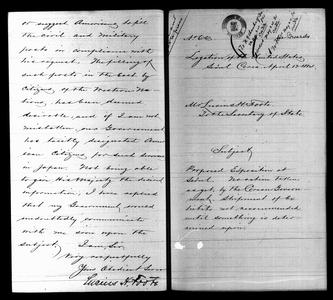 or suggest Americans to fill
the civil and military
posts in compliance with
his request. The filling of
such posts in the East by
Citizens of the Western Na-
tions, has been deemed
desirable, and if I am not
mistaken, our Government
has tacitly designated Ameri-
can Citizens for such service
in Japan. Not being able
to give His Majesty the desired
information, I am
that my Government would
undoubtedly communicate
with me soon upon the
subject. I am Sir,
Very respectfully
Your Obedient Servant
Lucius H. Foote
Legation of the United States,
Seoul Corea, April
Mr Lucius H. Foote
to the Secretary of State
Subject;
Proposed Exposition at
Seoul. No action taken
as yet by the Corean Govern
ment. Shipment of Ex
hibits not recommended
until something is deter
mined upon.